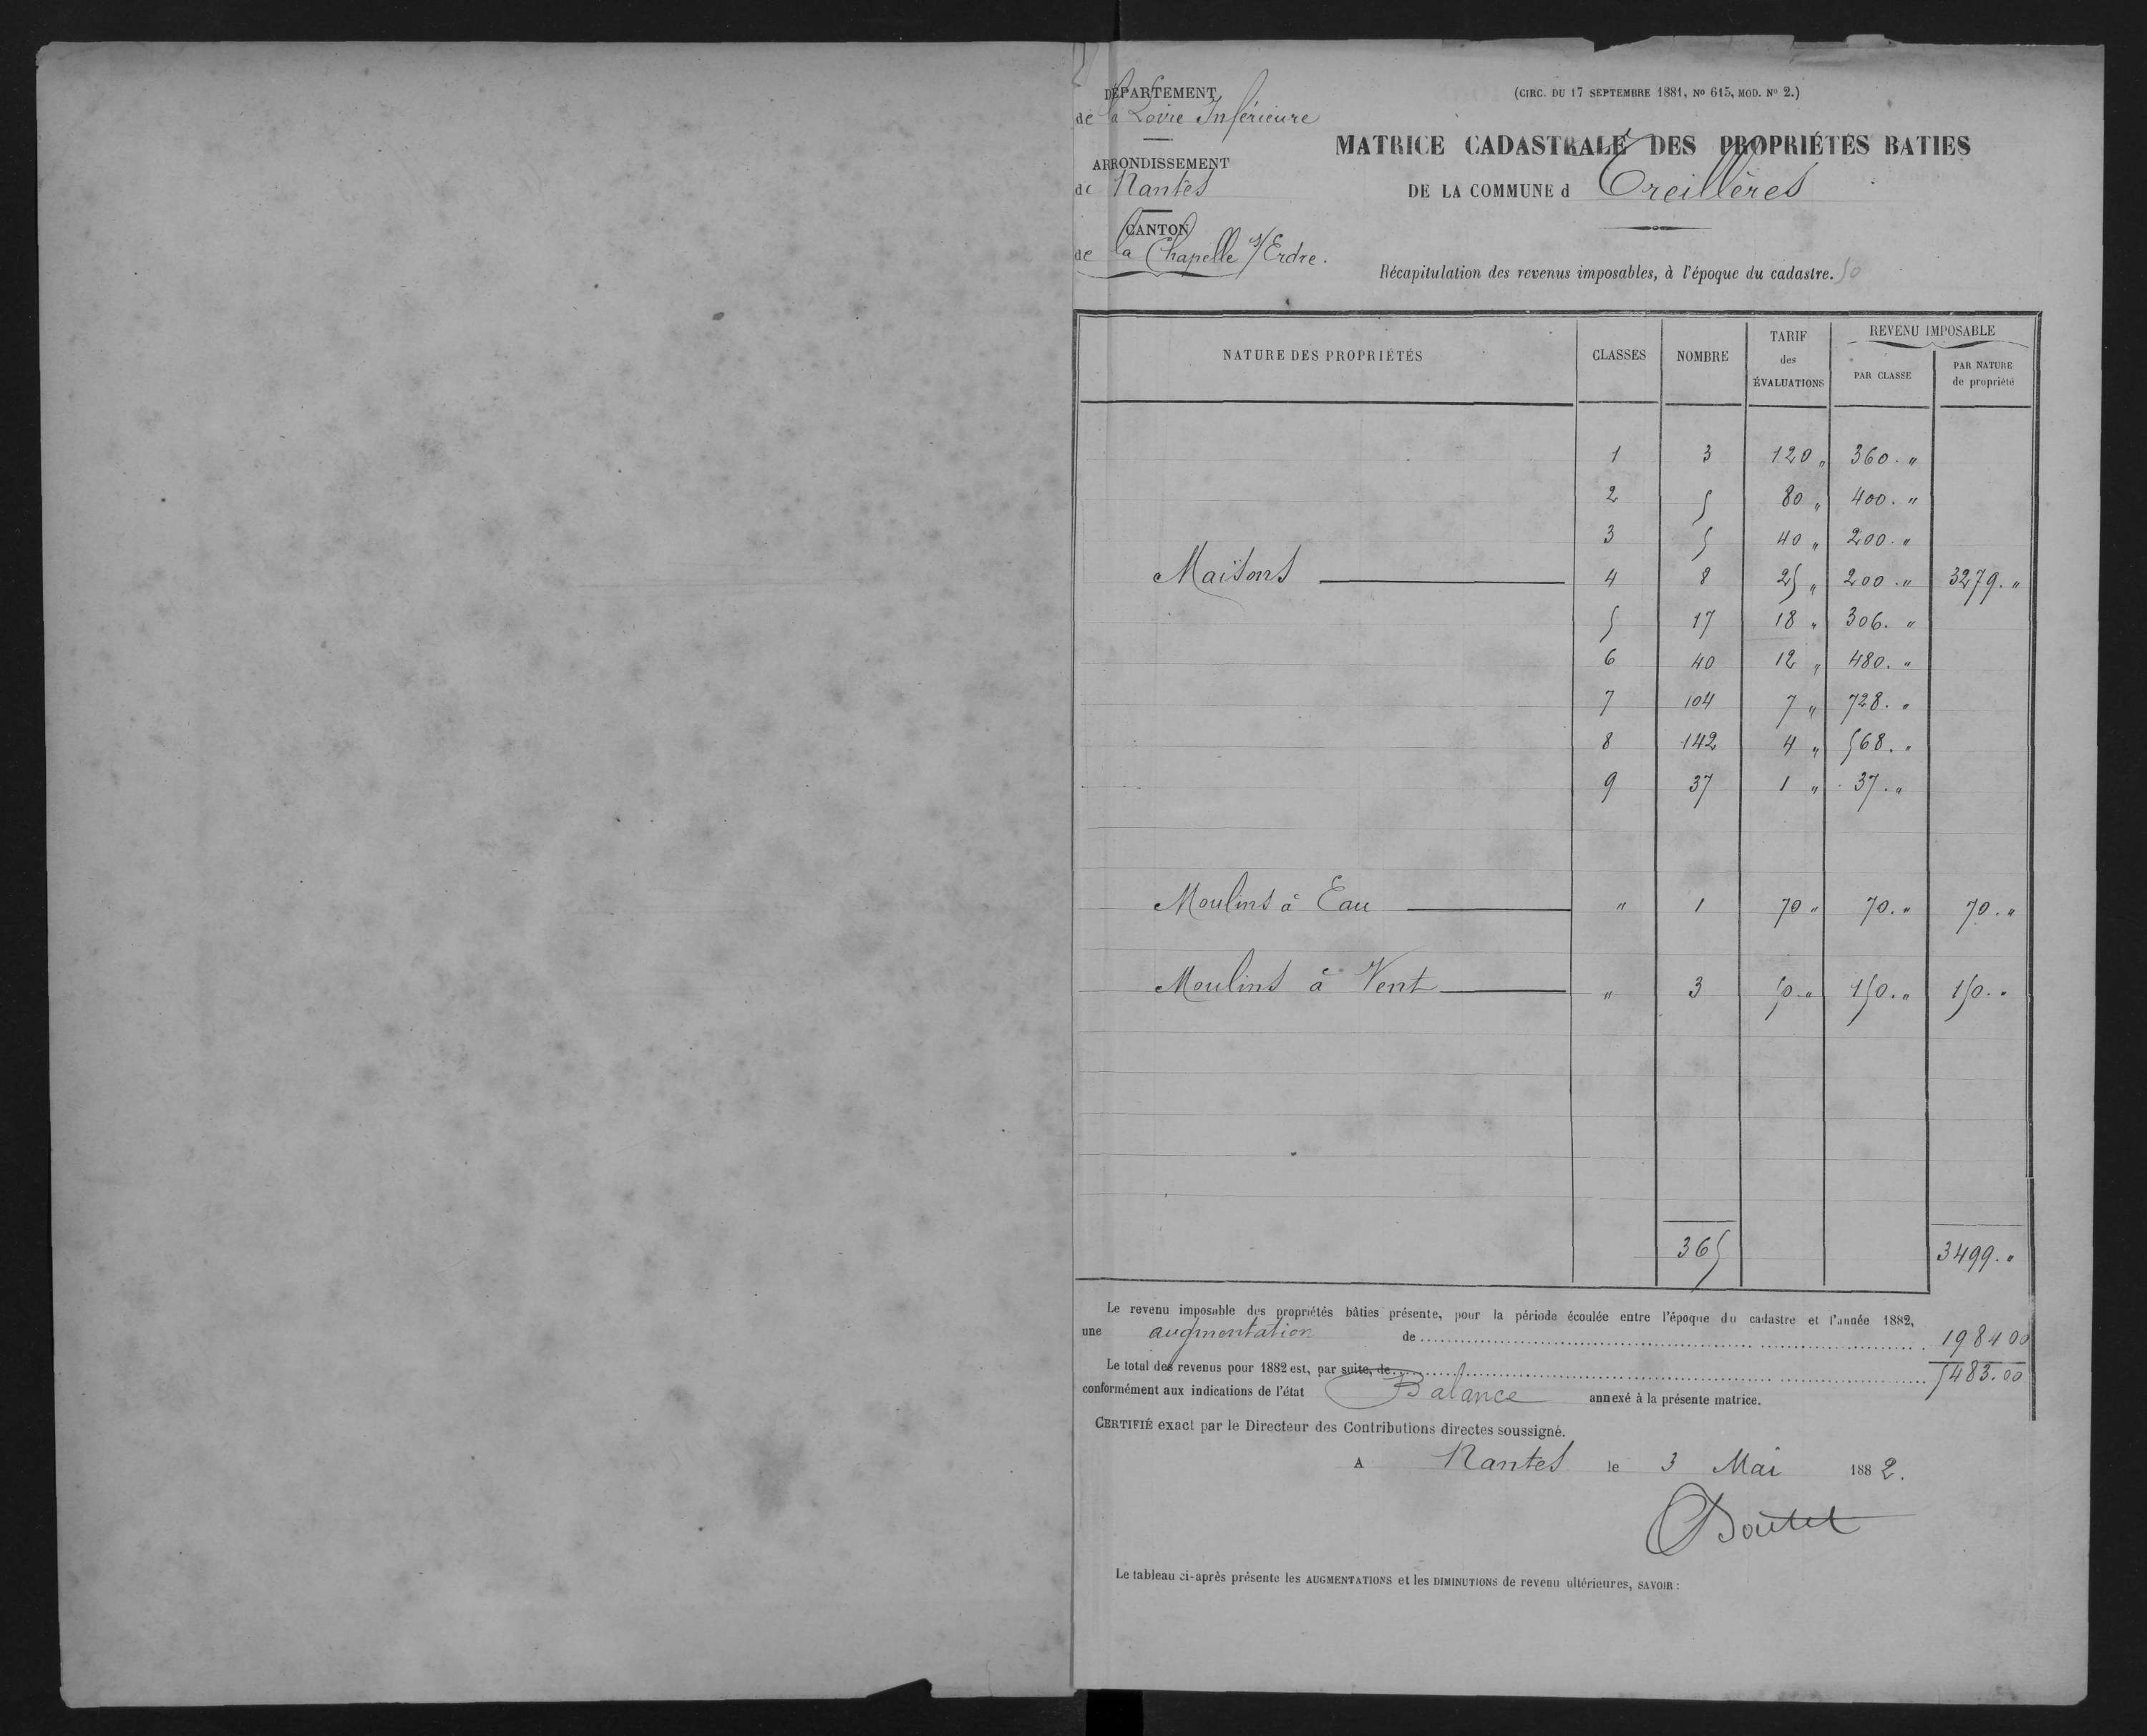 DÉPARTEMENT
de la Loire Inférieure
ARRONDISSEMENT
de Nantes
CANTON
de la Chapelle s/Erdre.
(CIRC. DU 17 SEPTEMBRE 1881, No 615, MOD. No 2.)
MATRICE CADASTRALE DES PROPRIÉTÉS BATIES
DE LA COMMUNE d Treillères
Récapitulation des revenus imposables, à l'époque du cadastre. 50
NATURE DES PROPRIÉTÉS CLASSES NOMBRE TARIF des ÉVALUATIONS REVENU IMPOSABLE PAR CLASSE PAR NATURE de propriété
1 3 120 " 360. "
2 5 80 " 400. "
3 5 40 " 200. "
Maisons 4 8 25 " 200. " 3279. "
5 17 18 " 306. "
6 40 12 " 480. "
7 104 7 " 728. "
8 142 4 " 568. "
9 37 1 " 37. "
Moulins à Eau " 1 70 " 70. " 70. "
Moulins à Vent " 3 50. " 150. " 150. "
365 3499. "
Le revenu imposable des propriétés bâties présente, pour la période écoulée entre l'époque du cadastre et l'année 1882,
une augmentation de 1984 00
Le total des revenus pour 1882 est, par suite, de 5483.00
conformément aux indications de l'état Balance annexé à la présente matrice.
CERTIFIÉ exact par le Directeur des Contributions directes soussigné.
A Nantes le 3 Mai 1882.
Le tableau ci-après présente les AUGMENTATIONS et les DIMINUTIONS de revenu ultérieures, SAVOIR :